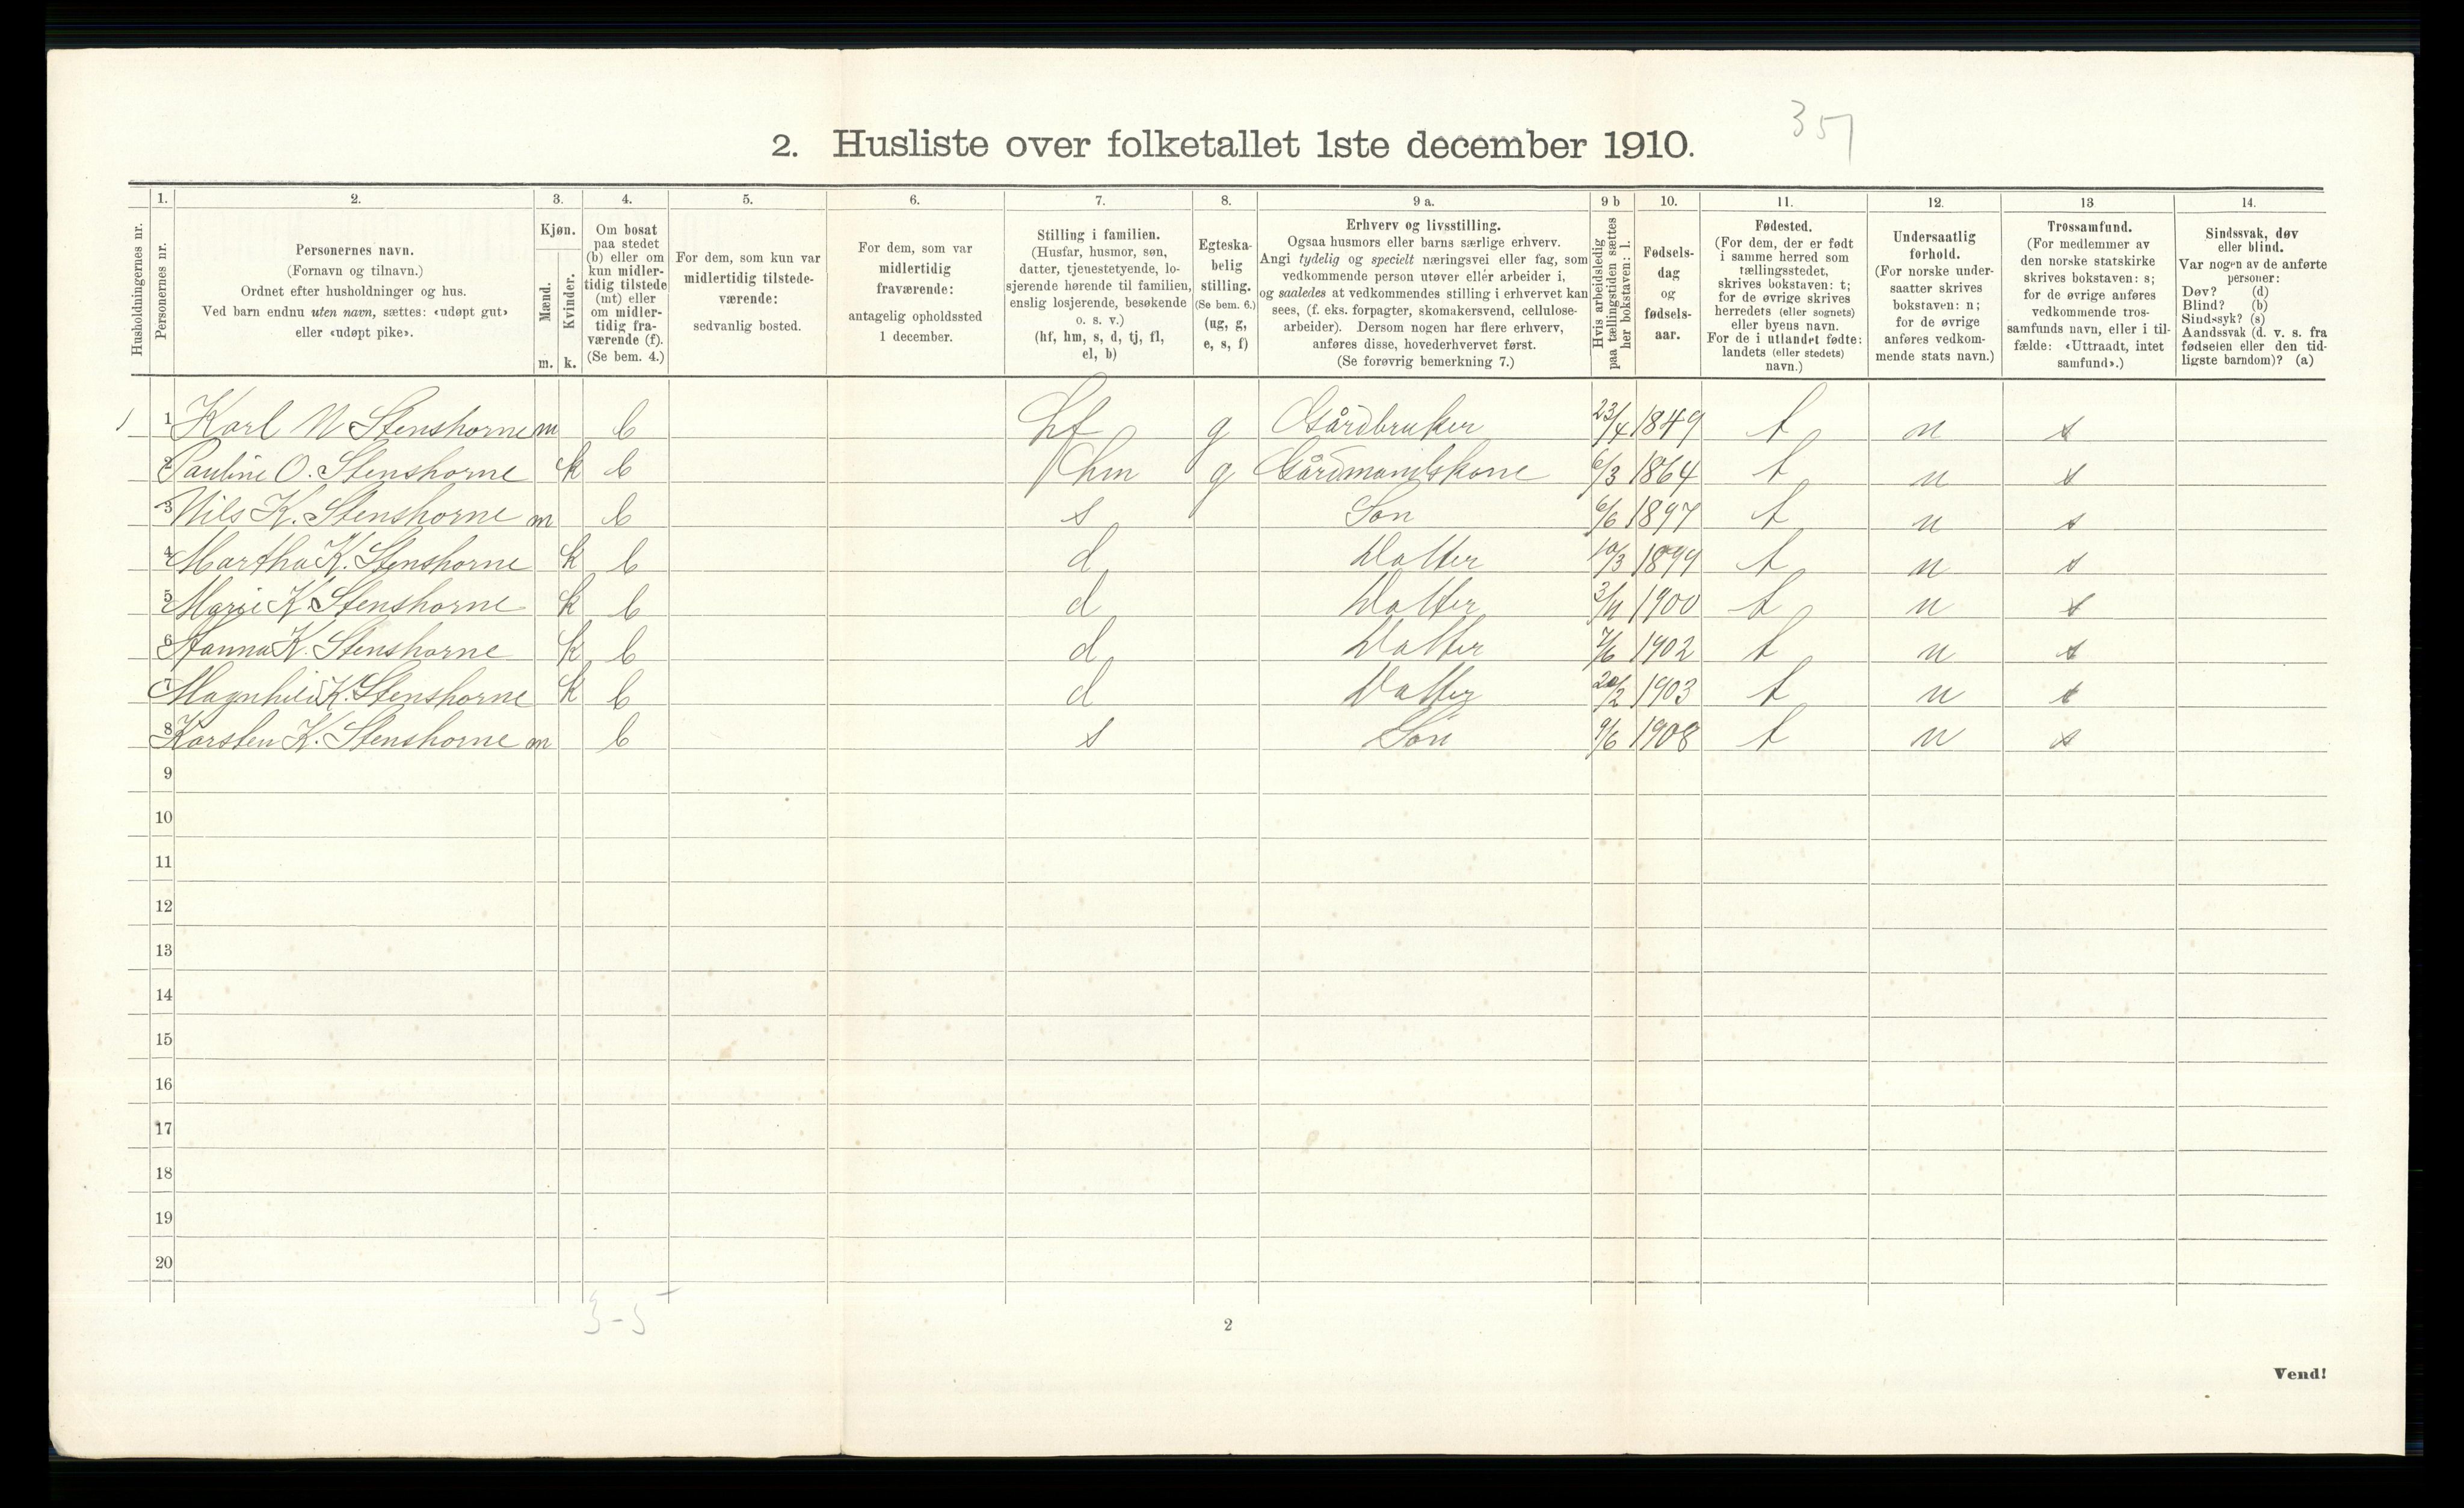 351
2. Husliste over folketallet 1ste december 1910.
Husholdningernes nr.
1. Personernes nr.
2. Personernes navn.
(Fornavn og tilnavn.)
Ordnet efter husholdninger og hus.
Ved barn endnu uten navn, sættes: «udøpt gut»
eller «udøpt pike».
3. Kjøn.
Mænd. m.
Kvinder. k.
4. Om bosat
paa stedet
(b) eller om
kun midler-
tidig tilstede
(mt) eller
om midler-
tidig fra-
værende (f).
(Se bem. 4.)
5. For dem, som kun var
midlertidig tilstede-
værende:
sedvanlig bosted.
6. For dem, som var
midlertidig
fraværende:
antagelig opholdssted
1 december.
7. Stilling i familien.
(Husfar, husmor, søn,
datter, tjenestetyende, lo-
sjerende hørende til familien,
enslig losjerende, besøkende
o. s. v.)
(hf, hm, s, d, tj, fl,
el, b)
8. Egteska-
belig
stilling.
(Se bem. 6.)
(ug, g,
e, s, f)
9 a. Erhverv og livsstilling.
Ogsaa husmors eller barns særlige erhverv.
Angi tydelig og specielt næringsvei eller fag, som
vedkommende person utøver eller arbeider i,
og saaledes at vedkommendes stilling i erhvervet kan
sees, (f. eks. forpagter, skomakersvend, cellulose-
arbeider). Dersom nogen har flere erhverv,
anføres disse, hovederhvervet først.
(Se forøvrig bemerkning 7.)
9 b Hvis arbeidsledig
paa tællingstiden sættes
her bokstaven: l.
10. Fødsels-
dag
og
fødsels-
aar.
11. Fødested.
(For dem, der er født
i samme herred som
tællingsstedet,
skrives bokstaven: t;
for de øvrige skrives
herredets (eller sognets)
eller byens navn.
For de i utlandet fødte:
landets (eller stedets)
navn.)
12. Undersaatlig
forhold.
(For norske under-
saatter skrives
bokstaven: n;
for de øvrige
anføres vedkom-
mende stats navn.)
13 Trossamfund.
(For medlemmer av
den norske statskirke
skrives bokstaven: s;
for de øvrige anføres
vedkommende tros-
samfunds navn, eller i til-
fælde: «Uttraadt, intet
samfund».)
14. Sindssvak, døv
eller blind.
Var nogen av de anførte
personer:
Døv? (d)
Blind? (b)
Sindssyk? (s)
Aandssvak (d. v. s. fra
fødselen eller den tid-
ligste barndom)? (a)
1 1 Karl N Stenshorne m b hf g Gårdbruker 23/4 1849 t n s
2 Pauline O. Stenshorne k b hm g Gårdmandskone 6/3 1864 t n s
3 Nils K. Stenshorne m b s Søn 6/6 1897 t n s
4 Martha K. Stenshorne k b d Datter 10/3 1899 t n s
5 Marie K. Stenshorne k b d Datter 3/11 1900 t n s
6 Hanna K. Stenshorne k b d Datter 7/6 1902 t n s
7 Magnhild K. Stenshorne k b d Datter 20/2 1903 t n s
8 Karsten K. Stenshorne m b s Søn 9/6 1908 t n s
9
10
11
12
13
14
15
16
17
18
19
20
3-5
2
Vend!